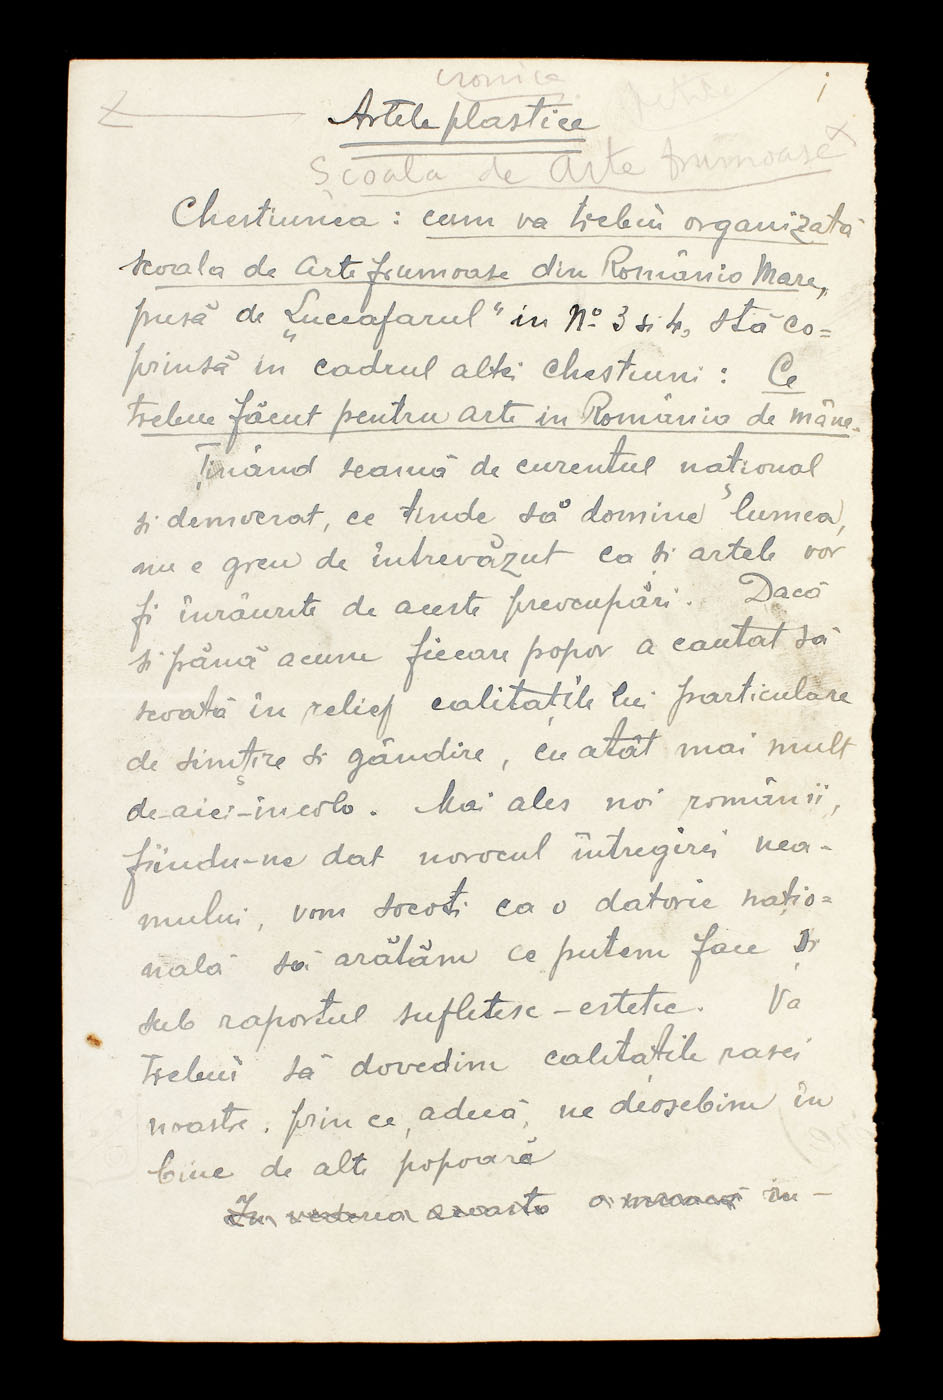 cronica
1
Artele plastice
Școala de Arte frumoase
Chestiunea : cum va trebui organizată
scoala de arte frumoase din România Mare,
pusă de „Luceafarul" in No 3 si 4, stă co=
prinsă in cadrul altei chestiuni : Ce
trebue făcut pentru arte in România de mâne.
Ținând seamă de curentul national
si democrat, ce tinde să domine lumea,
nu e greu de întrevăzut ca și artele vor
fi înrâurite de aceste preocupări. Dacă
si până acum fiecare popor a cautat să
scoată în relief calitațile lui particulare
de simțire si gândire, cu atât mai mult
de-aici-încolo. Mai ales noi românii,
fiindu-ne dat norocul întregirei nea-
mului, vom socoti ca o datorie națio=
nală să arătăm ce putem face și
sub raportul sufletesc-estetic. Va
trebui să dovedim calitațile rasei
noastre. prin ce, adecă, ne deosebim în
bine de alte popoară
In vederea aceasta in-